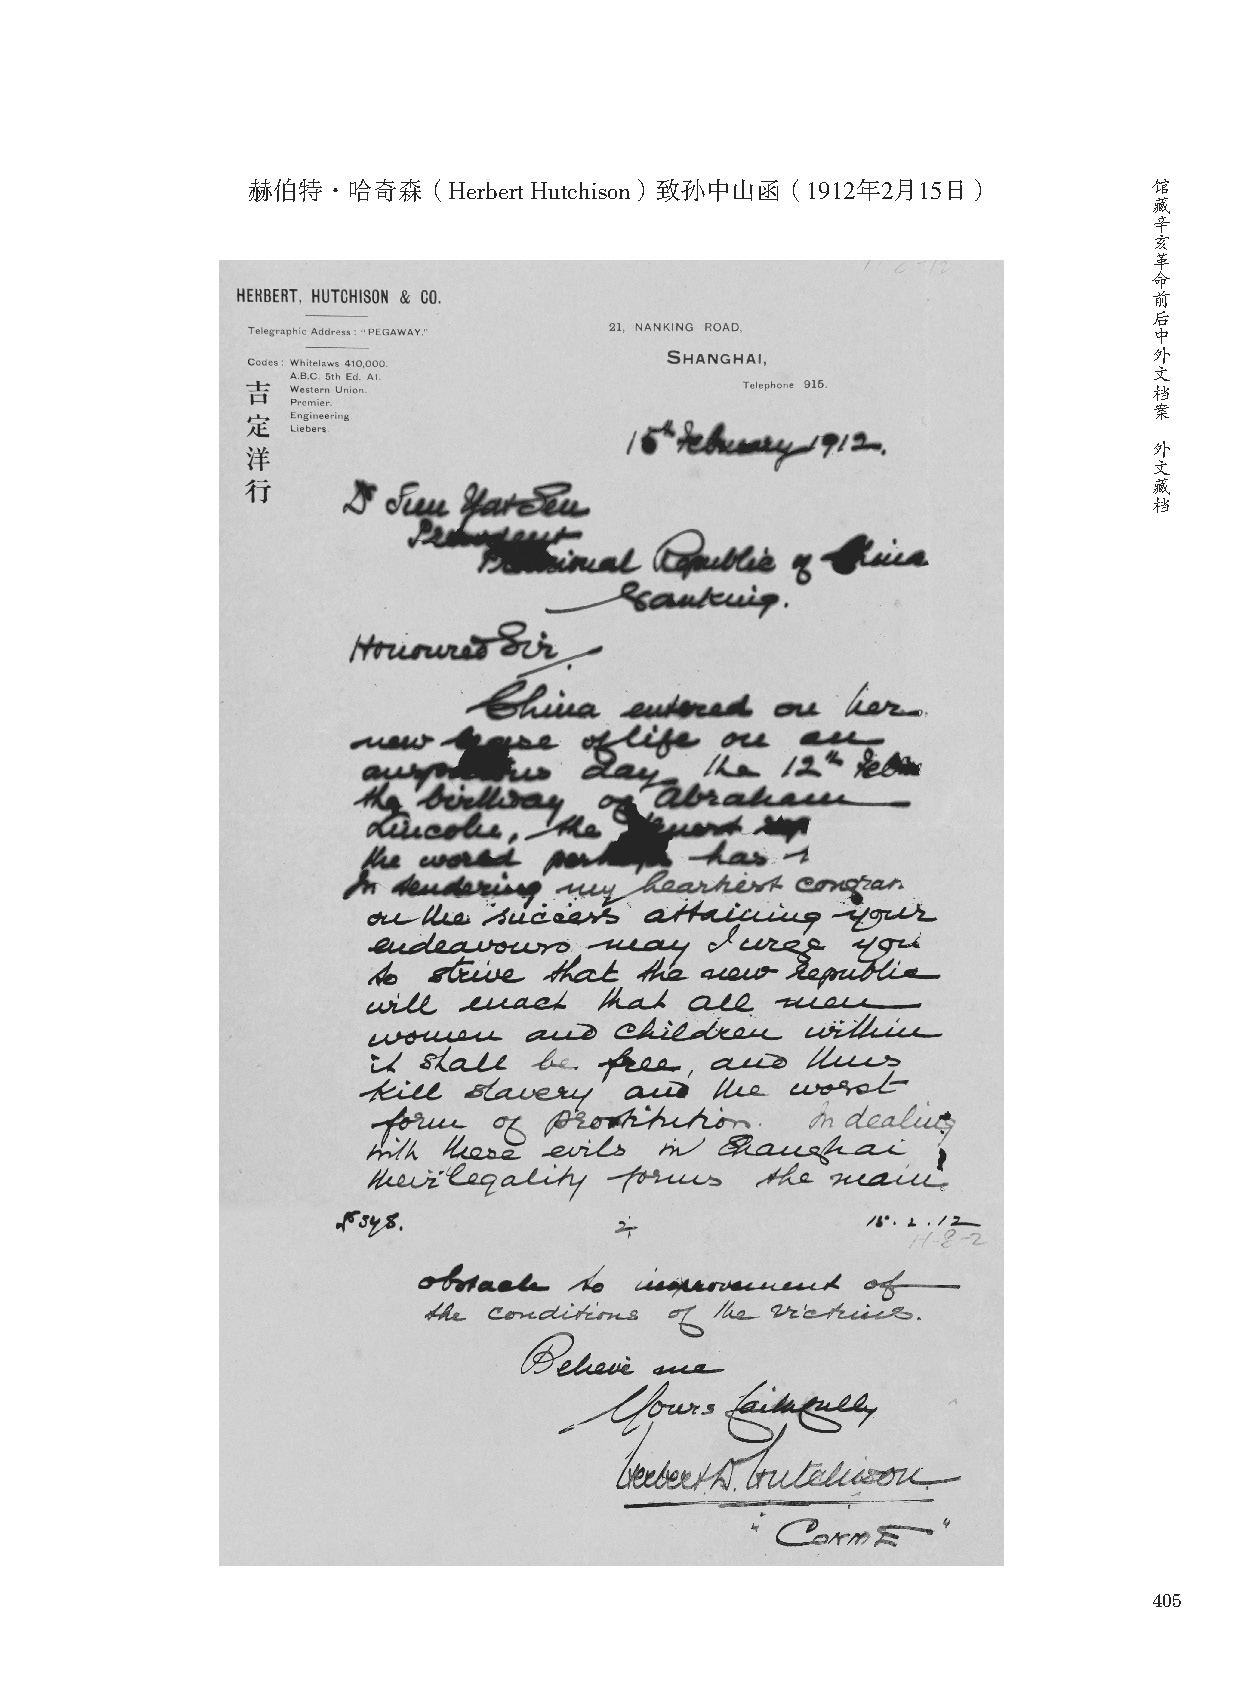 赫伯特·哈奇森（Herbert Hutchison）致孙中山函（1912年2月15日）
馆藏辛亥革命前后中外文档案 外文藏档
HERBERT, HUTCHISON & CO.
Telegraphic Address: "PEGAWAY."
Codes: Whitelaws 410,000.
A.B.C. 5th Ed. A1.
Western Union.
Premier.
Engineering
Liebers.
吉定洋行
21, NANKING ROAD,
SHANGHAI,
Telephone 915.
15th February 1912.
Dr Sun Yat Sen
President
Provisional Republic of China
Nanking.
Honoured Sir,
China entered on her
new lease of life on an
auspicious day the 12th Feb
the birthday of Abraham
Lincoln, the
the world perhaps has
In tendering my heartiest congra
on the success attaining your
endeavours may I urge you
to strive that the new republic
will enact that all men
women and children within
it shall be free, and thus
kill slavery and the worst
form of prostitution. In dealing
with these evils in Shanghai
their legality forms the main
15.2.12
2
H-8-2
obstacle to improvement of
the conditions of the victims.
Believe me
Yours faithfully
Herbert D. Hutchison.
405